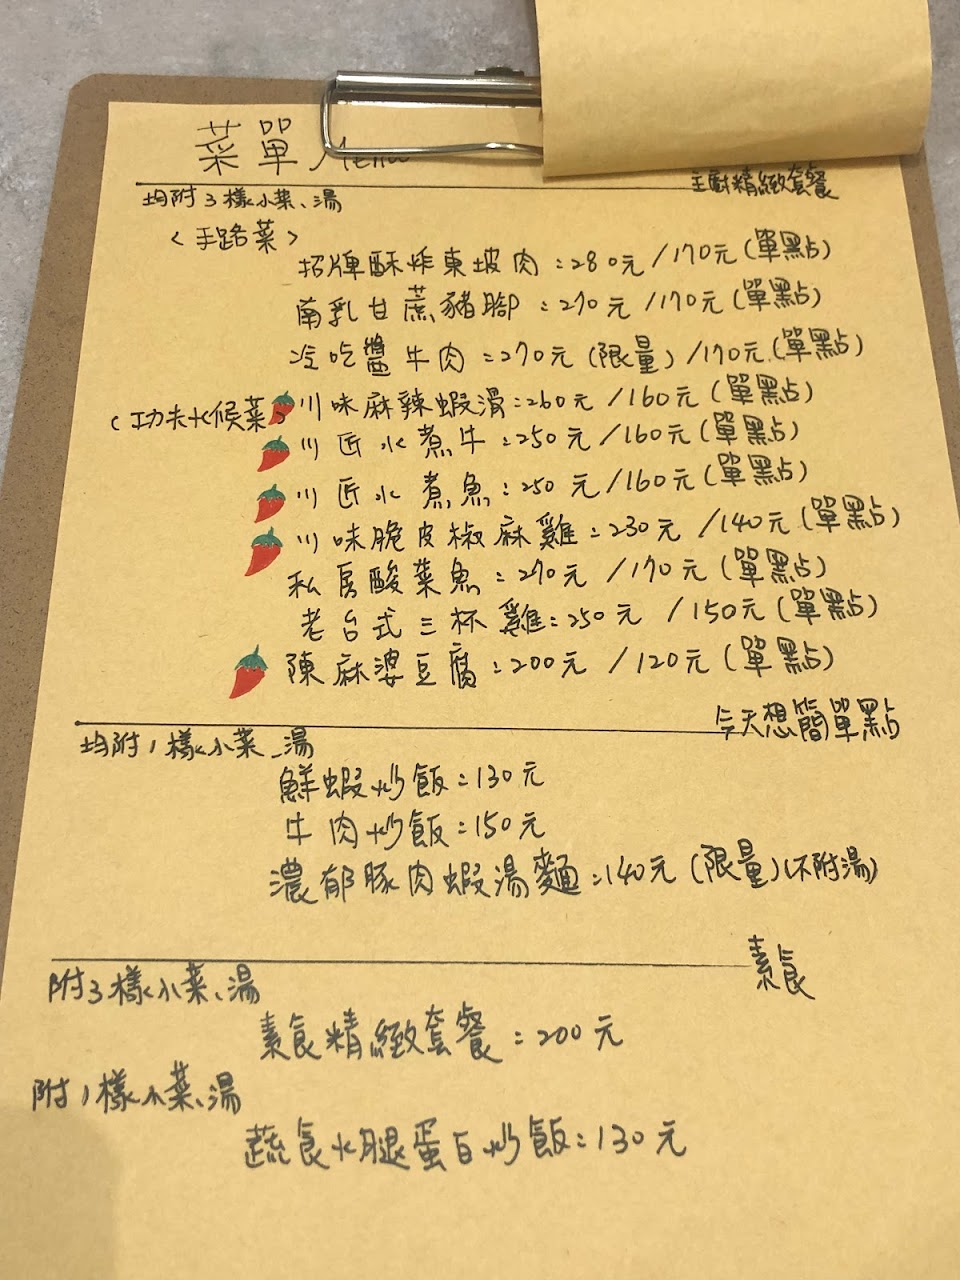 菜單 Menu
主廚精緻套餐
均附3樣小菜、湯
<手路菜>
招牌酥炸東坡肉:280元/170元(單點)
南乳甘蔗豬腳:270元/170元(單點)
冷吃醬牛肉:270元(限量)/170元(單點)
(功夫火候菜)
川味麻辣蝦滑:260元/160元(單點)
川匠水煮牛:250元/160元(單點)
川匠水煮魚:250元/160元(單點)
川味脆皮椒麻雞:230元/140元(單點)
私房酸菜魚:270元/170元(單點)
老台式三杯雞:250元/150元(單點)
陳麻婆豆腐:200元/120元(單點)
今天想簡單點
均附1樣小菜、湯
鮮蝦炒飯:130元
牛肉炒飯:150元
濃郁豚肉蝦湯麵:140元(限量)(不附湯)
素食
附3樣小菜、湯
素食精緻套餐:200元
附1樣小菜、湯
蔬食火腿蛋白炒飯:130元